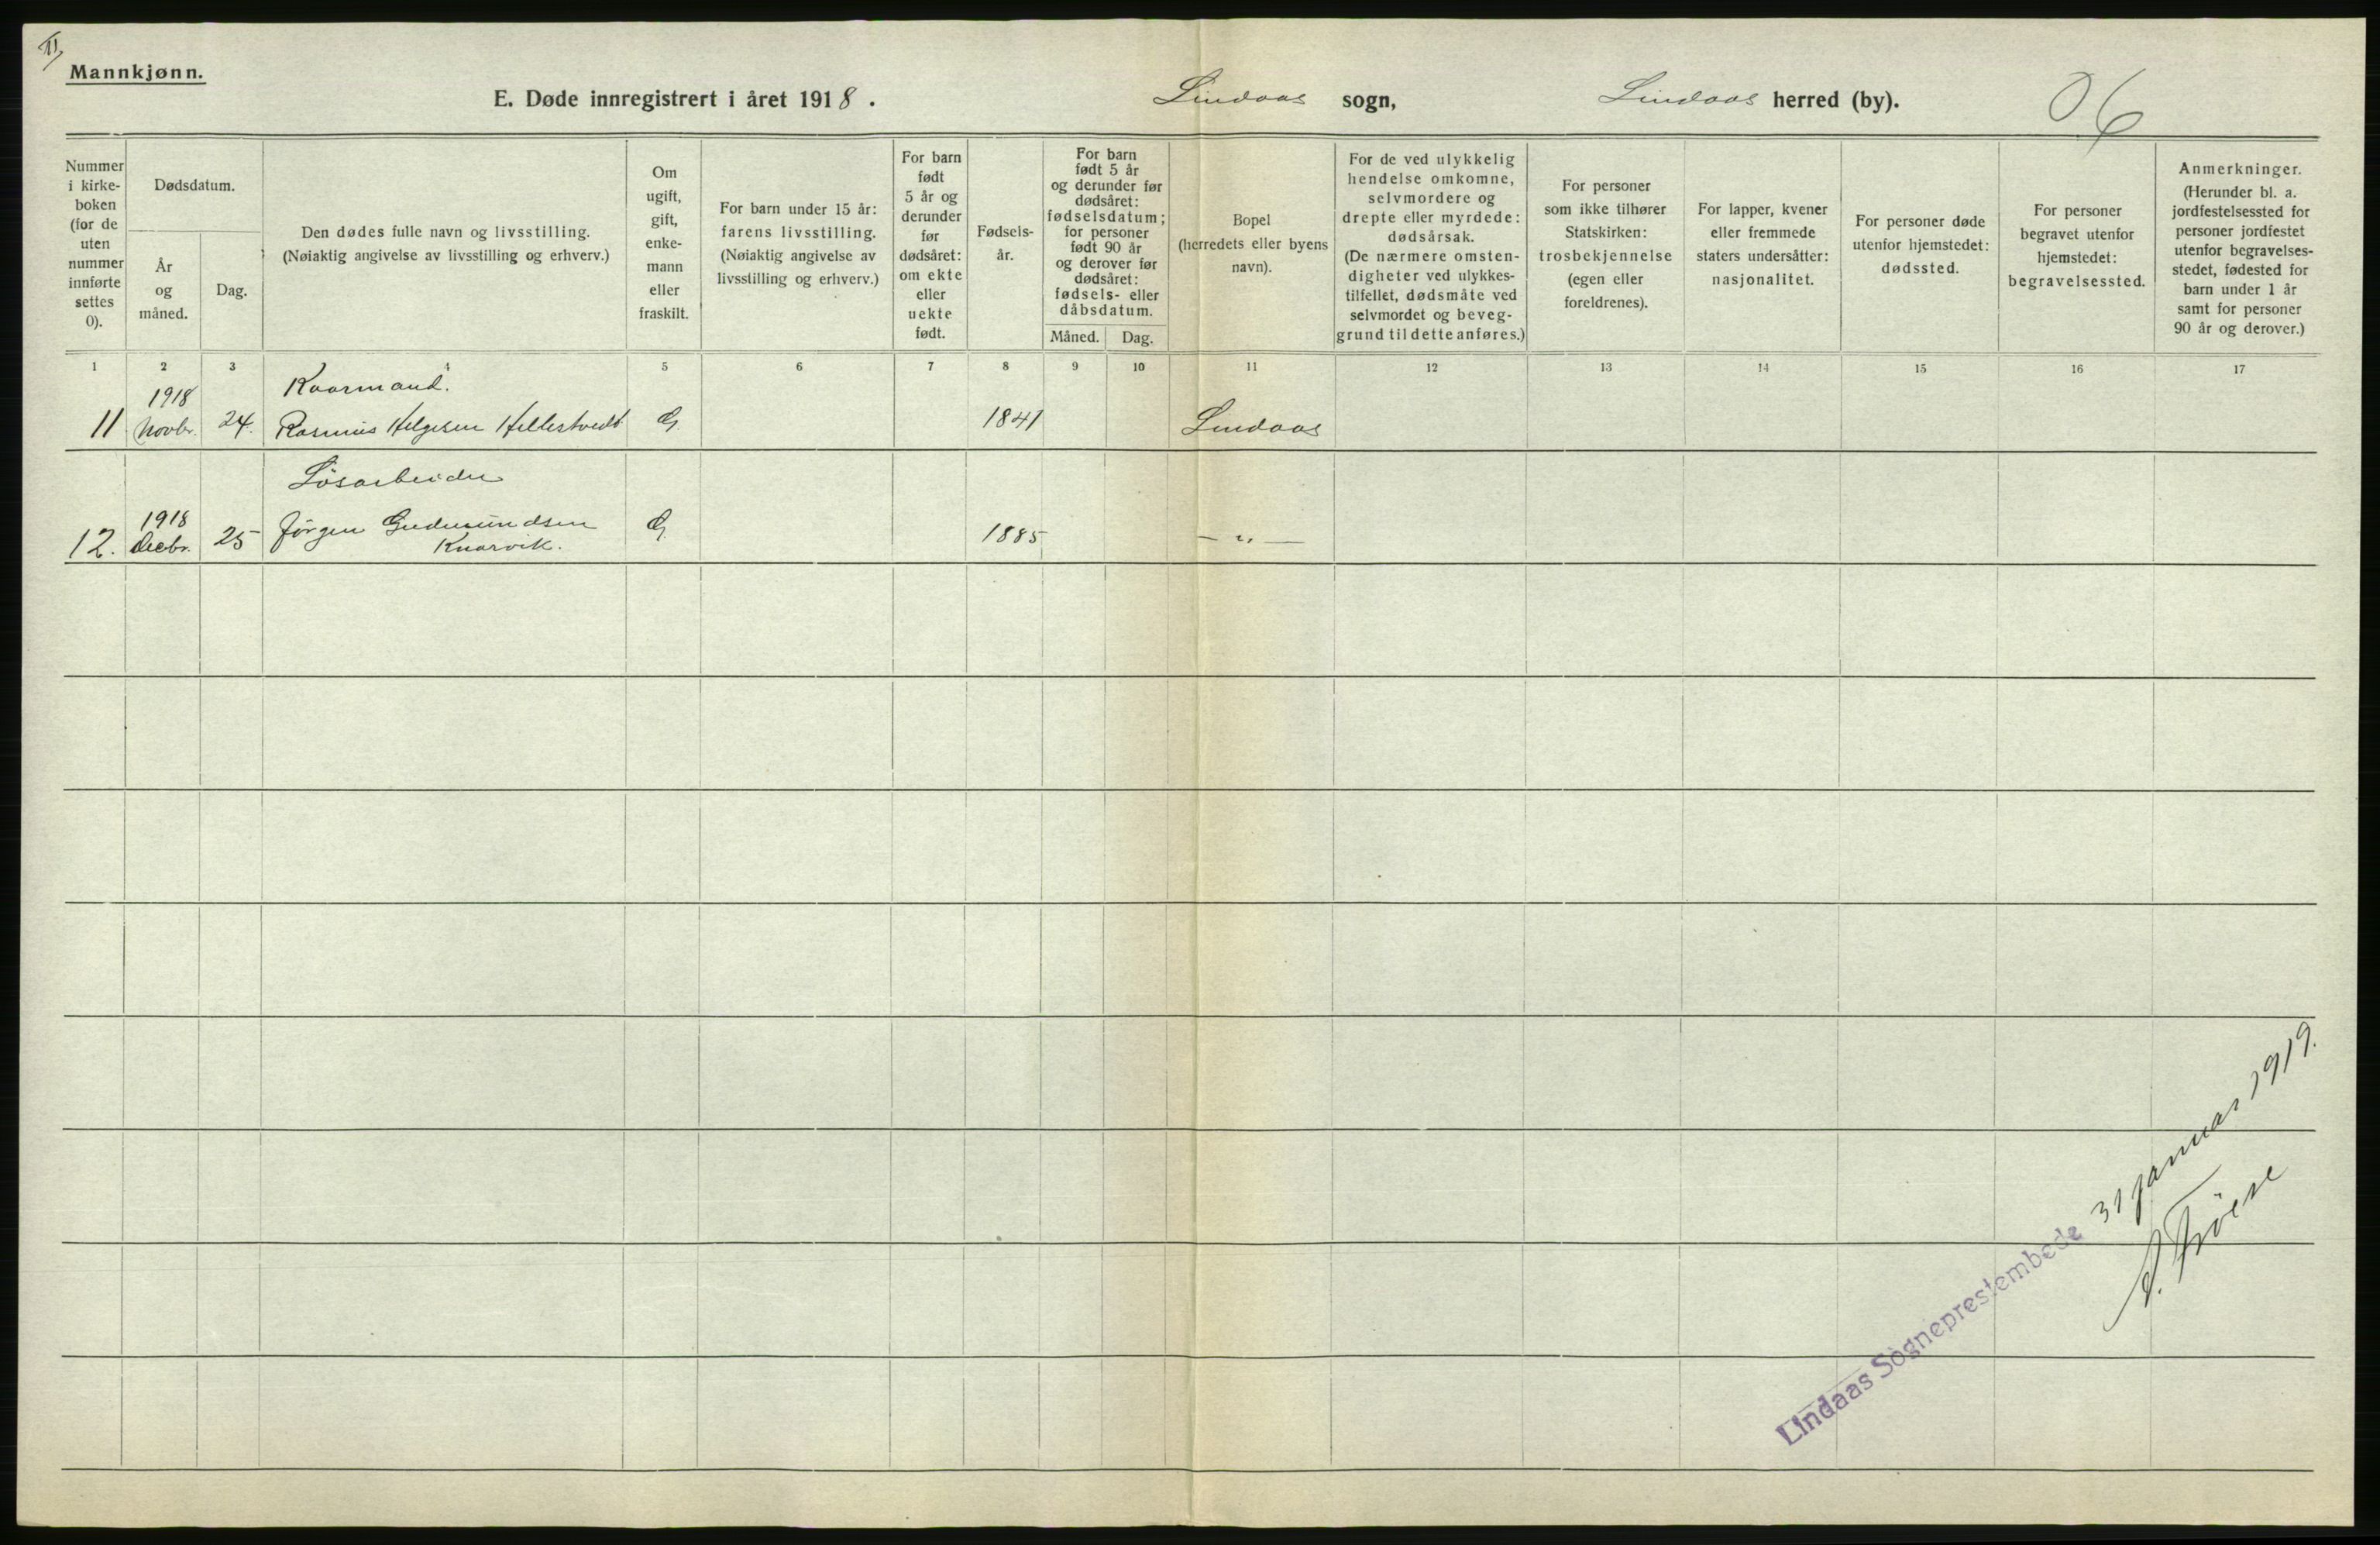 II,
Mannkjønn.
E. Døde innregistrert i året 1918.
Lindaas sogn,
Lindaas herred (by).
06
Nummer
i kirke-
boken
(for de
uten
nummer
innførte
settes
0).
Dødsdatum.
År
og
måned.
Dag.
Den dødes fulle navn og livsstilling.
(Nøiaktig angivelse av livsstilling og erhverv.)
Om
ugift,
gift,
enke-
mann
eller
fraskilt.
For barn under 15 år:
farens livsstilling.
(Nøiaktig angivelse av
livsstilling og erhverv.)
For barn
født
5 år og
derunder
før
dødsåret:
om ekte
eller
uekte
født.
Fødsels-
år.
For barn
født 5 år
og derunder før
dødsåret:
fødselsdatum;
for personer
født 90 år
og derover før
dødsåret:
fødsels- eller
dåbsdatum.
Måned.
Dag.
Bopel
(herredets eller byens
navn).
For de ved ulykkelig
hendelse omkomne,
selvmordere og
drepte eller myrdede:
dødsårsak.
(De nærmere omsten-
digheter ved ulykkes-
tilfellet, dødsmåte ved
selvmordet og beveg-
grund til dette anføres.)
For personer
som ikke tilhører
Statskirken:
trosbekjennelse
(egen eller
foreldrenes).
For lapper, kvener
eller fremmede
staters undersåtter:
nasjonalitet.
For personer døde
utenfor hjemstedet:
dødssted.
For personer
begravet utenfor
hjemstedet:
begravelsessted.
Anmerkninger.
(Herunder bl. a.
jordfestelsessted for
personer jordfestet
utenfor begravelses-
stedet, fødested for
barn under 1 år
samt for personer
90 år og derover.)
1 2 3 4 5 6 7 8 9 10 11 12 13 14 15 16 17
1918 Kaarmand.
11 Novbr. 24. Rasmus Helgesen Hellestvedt G 1841 Lindaas
Løsarbeider
1918
12. Decbr. 25 Jørgen Gudmundsen G 1885 — " —
Knarvik.
Lindaas Sogneprestembede 31 januar 1919.